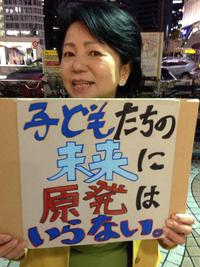 子どもたちの
未来に
原発は
いらない。